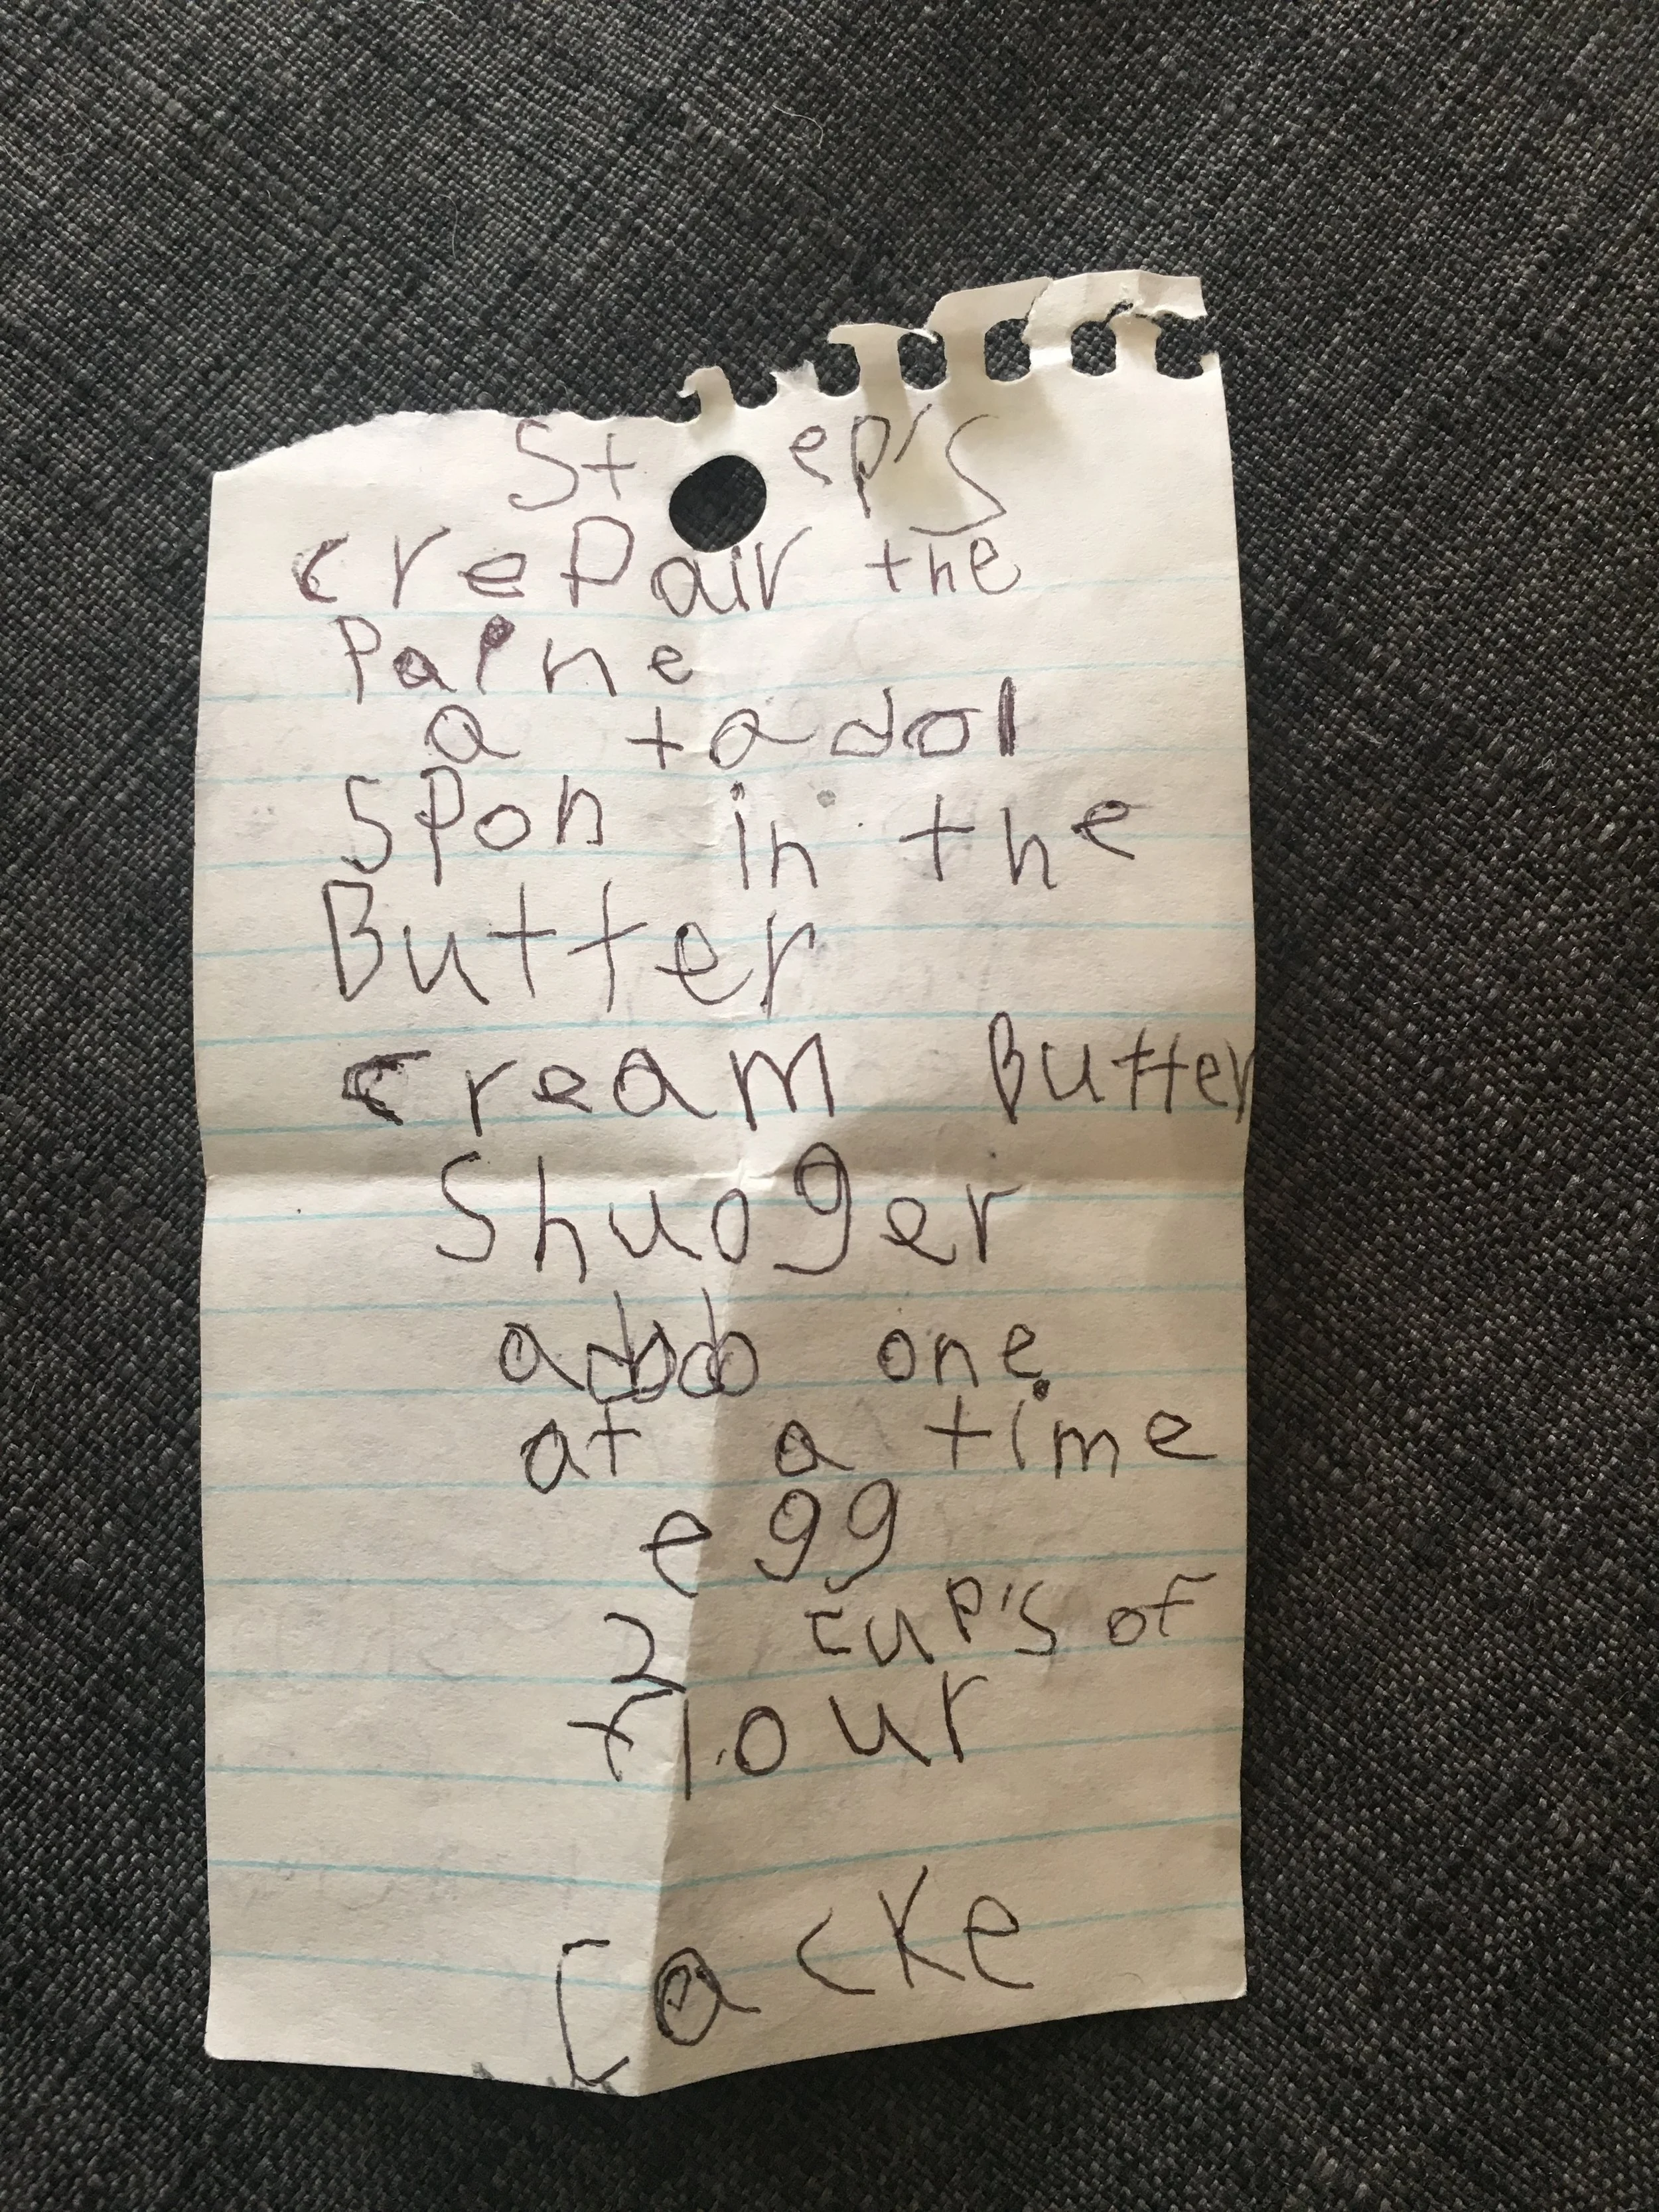 Step's
crepair the
Paine
a tadol
spon in the
Butter
cream Butter
Shuoger
one
at a time
egg
2 cup's of
flour
Cacke